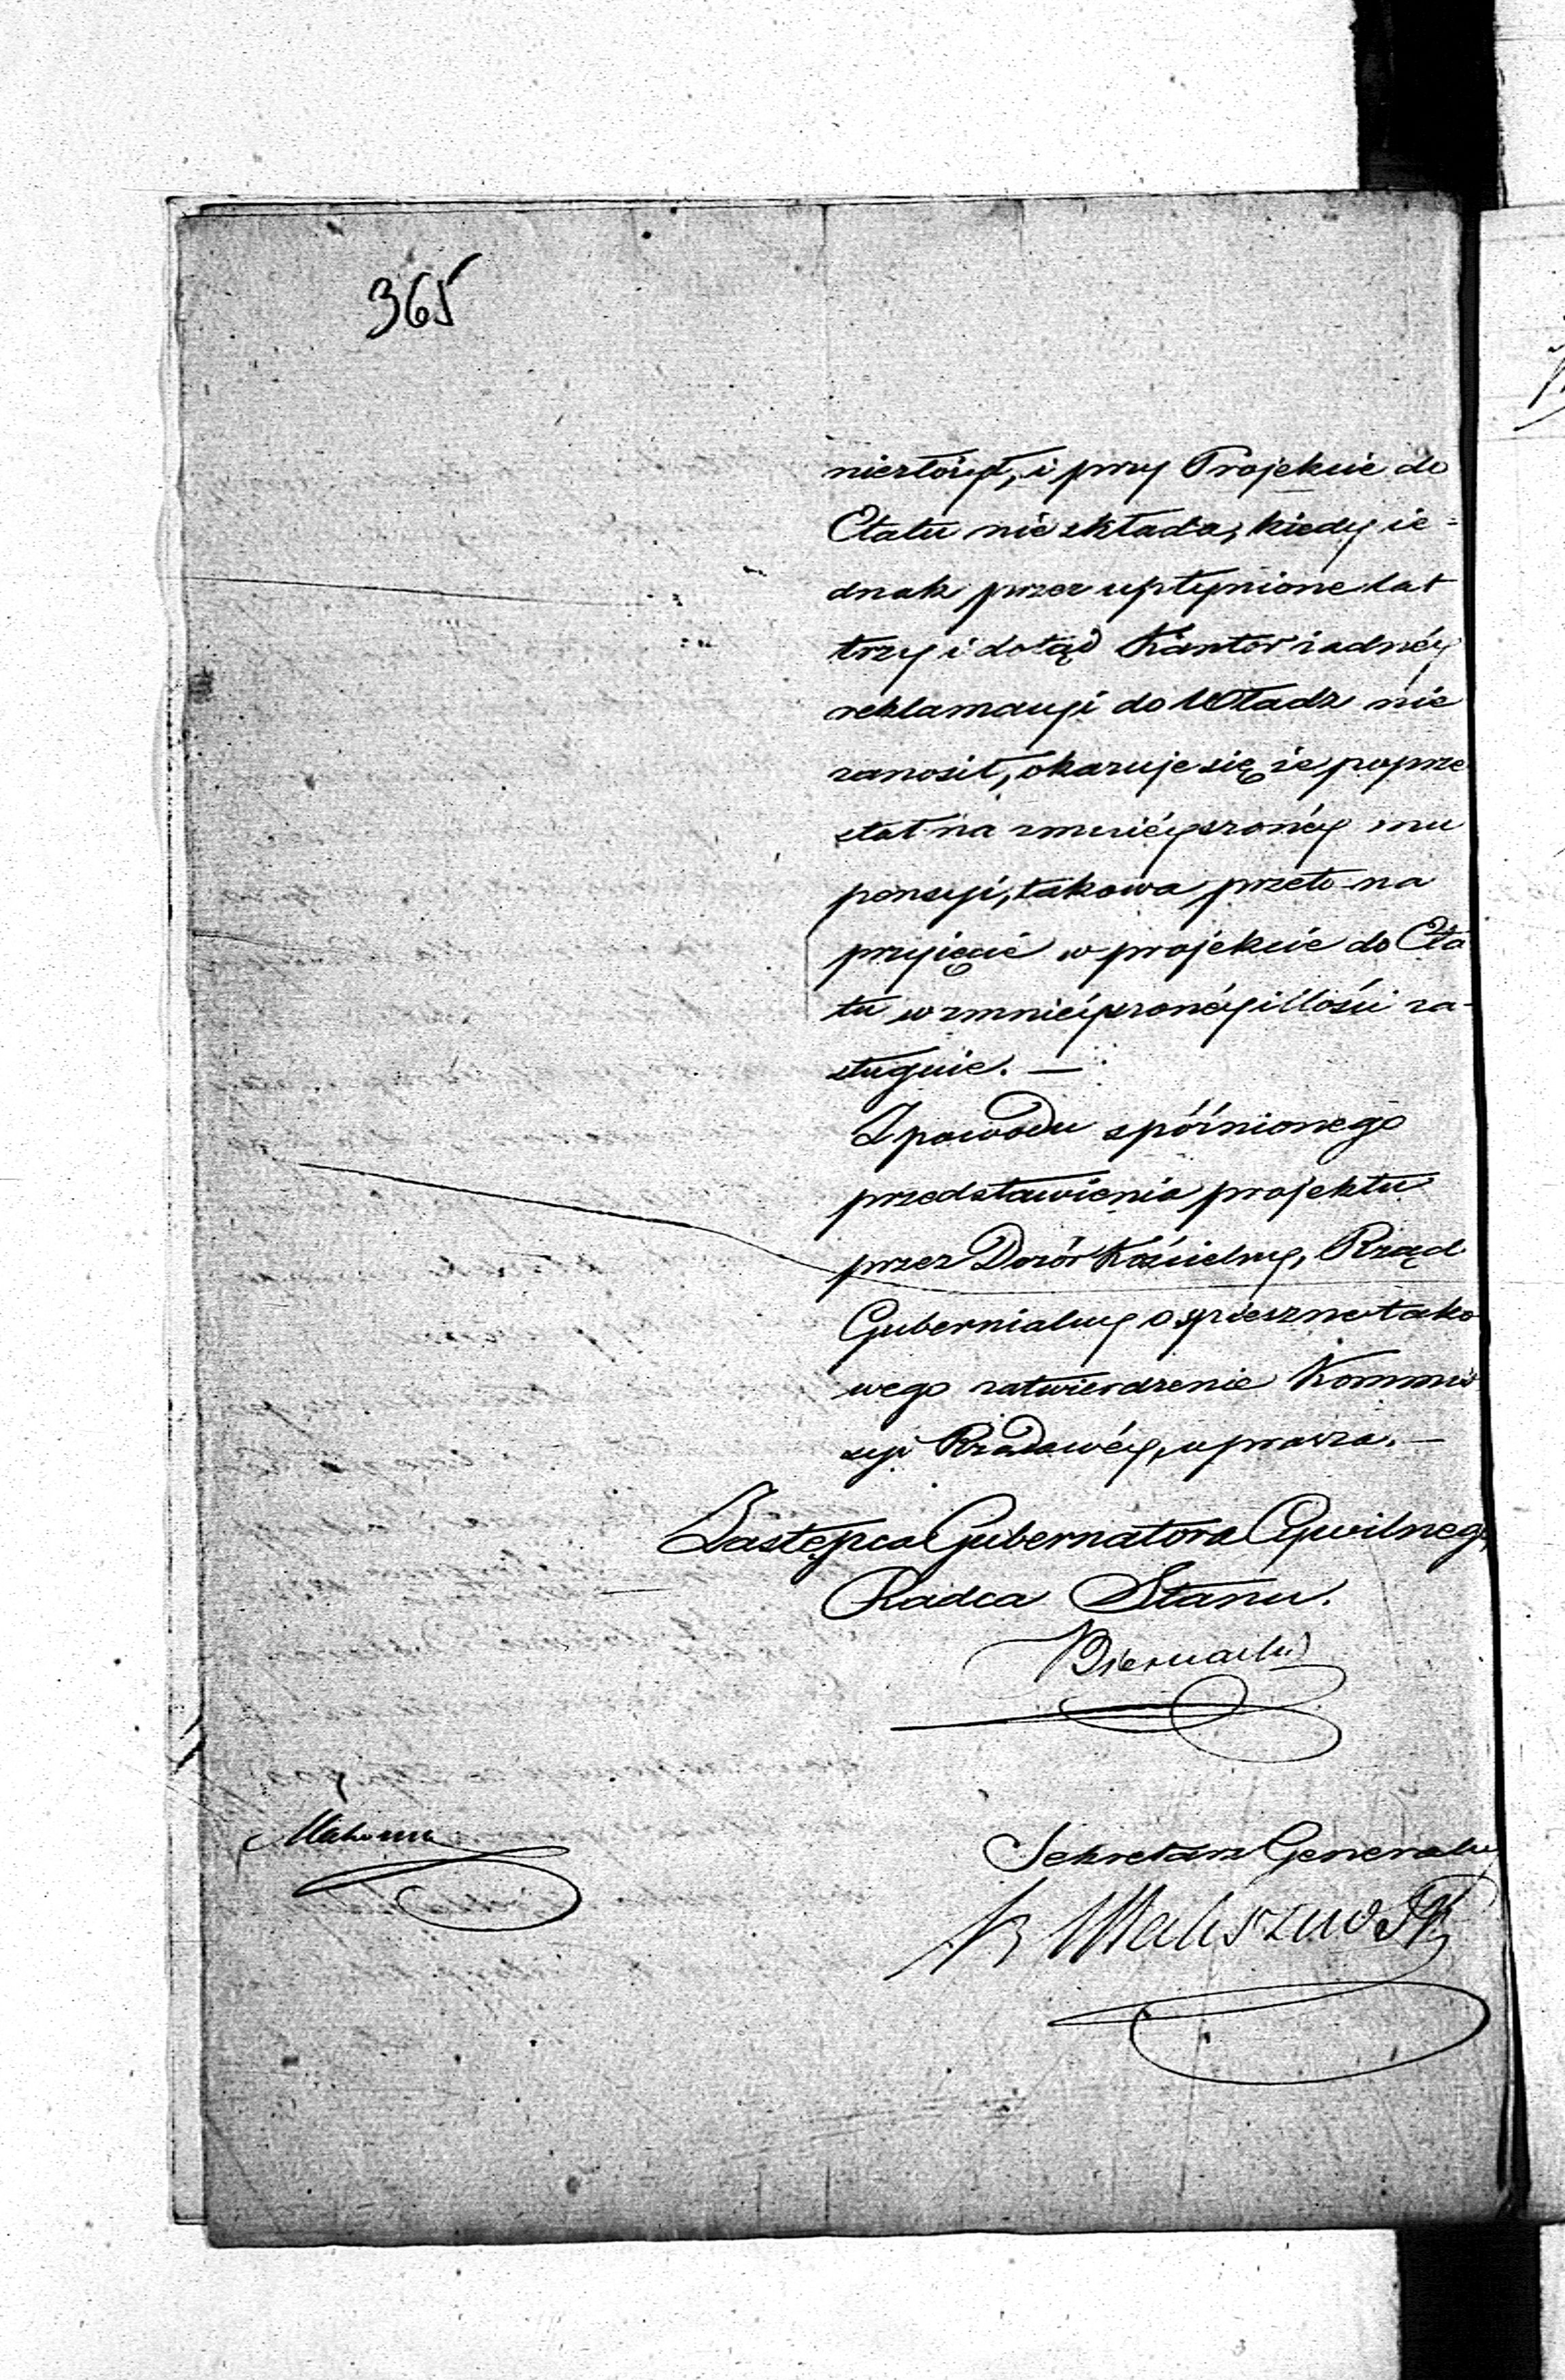 365
niezłożył, i przy Projekcie do
Etatu nie składa, kiedy ie=
dnak przez upłynione lat
trzy i dotąd Kantor żadnéy
reklamacyi do Władz nie
zanosił, okazuje się że poprze
stał na zmnieyszonéy mu
pensyi, takowa przeto na
przyięcie w projekcie do Eta
tu w zmnieyszonéy illości za-
sługuie. —
Z powodu spóźnionego
przedstawienia projektu
przez Dozór Kościelny, Rząd
Gubernialny o spieszne tako
wego zatwierdzenie Kommis
syi Rządowéy, uprasza. —
Zastępca Gubernatora Cywilnego
Radca Stanu.
Biernacki
Sekretarz Generalny